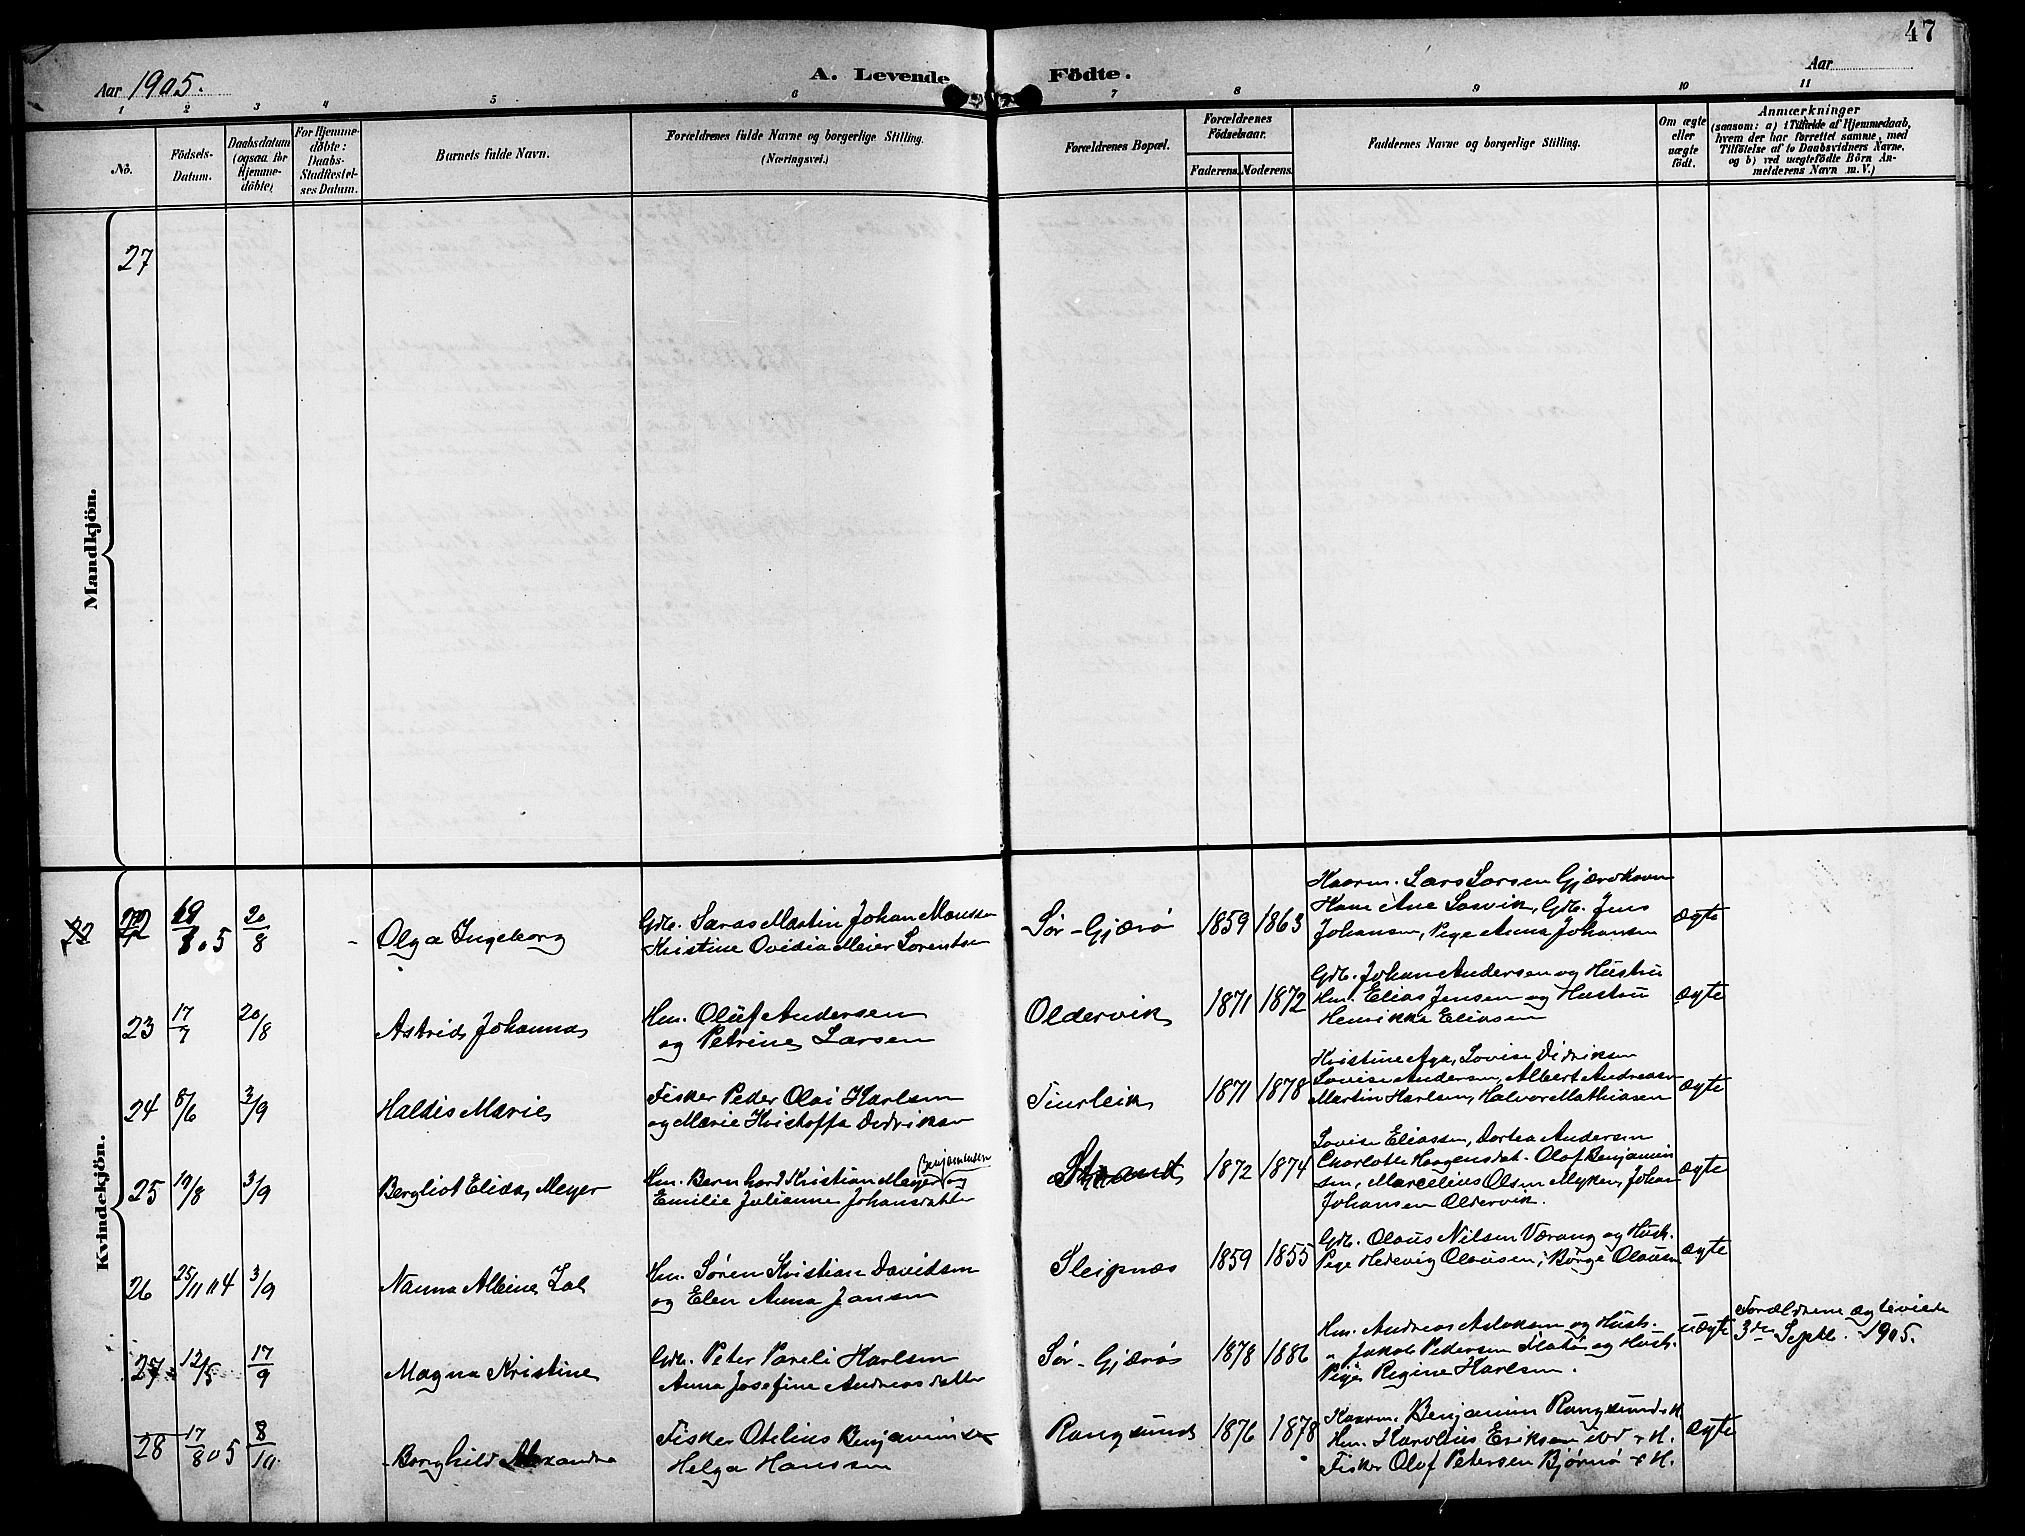 47
Aar 1905.
A. Levende Födte.
Aar
1 2 3 4 5 6 7 8 9 10 11
No.
Födsels-Datum.
Daabsdatum (ogsaa for Hjemme-döbte)
For Hjemme-döbte: Daabs-Stadfæstel-ses Datum.
Barnets fulde Navn.
Forældrenes fulde Navne og borgerlige Stilling.
(Næringsvei.)
Forældrenes Bopæl.
Forældrenes Födselsaar.
Faderens. Moderens.
Faddernes Navne og borgerlige Stilling.
Om ægte eller uægte födt.
Anmærkninger
(saasom: a) i Tilfælde af Hjemmedaab,
hvem der har forrettet samme, med
Tilföielse af to Daabsvidners Navne,
og b) ved uægtefödte Börn An-
melderens Navn m. V.)
Mandkjön.
27
Kvindekjön.
22 20/8 Olga Ingeborg
Gdb. Lars Martin Johan Monsen
Kristine Ovidia Meier Lorentsen
Sør-Gjærø 1859 1863
Kaarm. Lars Larsen Gjærdhavn
Kone Ane Lasvik, Gdb. Jens
Johansen, Pige Anna Johansen
ægte
23 17/7 20/8 Astrid Johanna
Hm. Oluf Andersen
og Petrine Larsen
Oldervik 1871 1872
Gdb. Johan Andersen og Hustru
Hm. Elias Jensen og Hustru
Henrikke Eliasen
ægte
24 8/6 3/9 Haldis Marie
Fisker Peder Olai Karlsen
og Marie Kristoffa Didriksen
1871 1878
Kristine Aga, Lovise Didriksen
Lovise Andersen, Albert Andreasen
Martin Karlsen, Halvor Mathiasen
ægte
25 19/8 3/9 Bergliot Elida Meyer
Benjaminsen
Hm. Bernhard Kristian Meyer og
Emilie Julianne Johansdatter
Strand 1872 1874
Lovise Eliassen, Dortea Andersen
Charlotte Haagensdat. Olaf Benjamin
sen, Marcelius Olsen Myken, Johan
Johansen Oldervik.
ægte
26 25/11 04 3/9 Nanna Albine
Hm. Søren Kristian Davidsen
og Elen Anna Jansen
Sleipnæs 1859 1855
Gdb. Olaus Nilsen Værang og Hust.
Pige Hedevig Olausen, Børge Olausen
ægte
27 12/5 17/9 Magna Kristine
Gdb. Peter Pareli Karlsen
Anna Josefine Andreasdatter
Sør-Gjærø 1878 1886
Hm. Andreas Aslaksen og Hust.
" Jakob Pedersen Flatø og Hust.
Pige Regine Karlsen.
uægte
Forældrene ægteviede
3die Septbr. 1905.
28 17/8 05 8/10 Borghild Alexandra
Fisker Otelius Benjaminsen
Helga Hanssen
Rangsund 1876 1878
Kaarm. Benjamin Rangsund & H.
Hm. Karolius Eriksen ibd & H.
Fisker Olof Petersen Bjørnø & H.
ægte